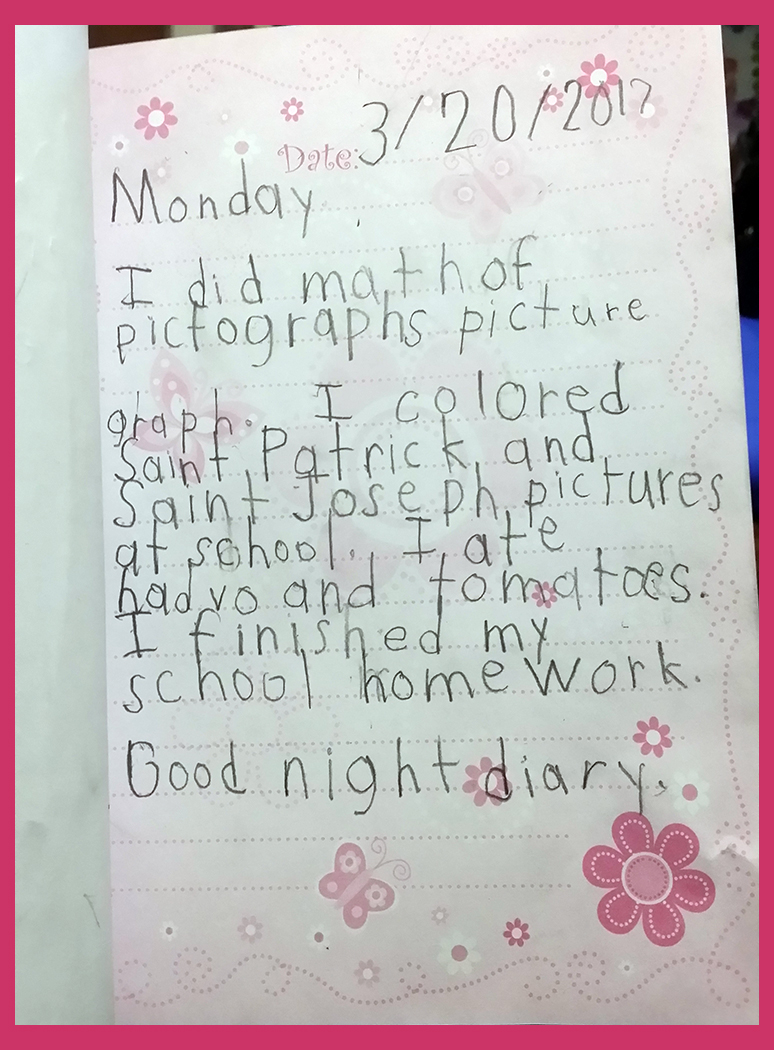 Date: 3/20/2017
Monday.
I did math of
pictographs picture
graph. I colored
Saint Patrick and
Saint Joseph pictures
at school. I ate
hadvo and tomatoes.
I finished my
school homework.
Good night diary.